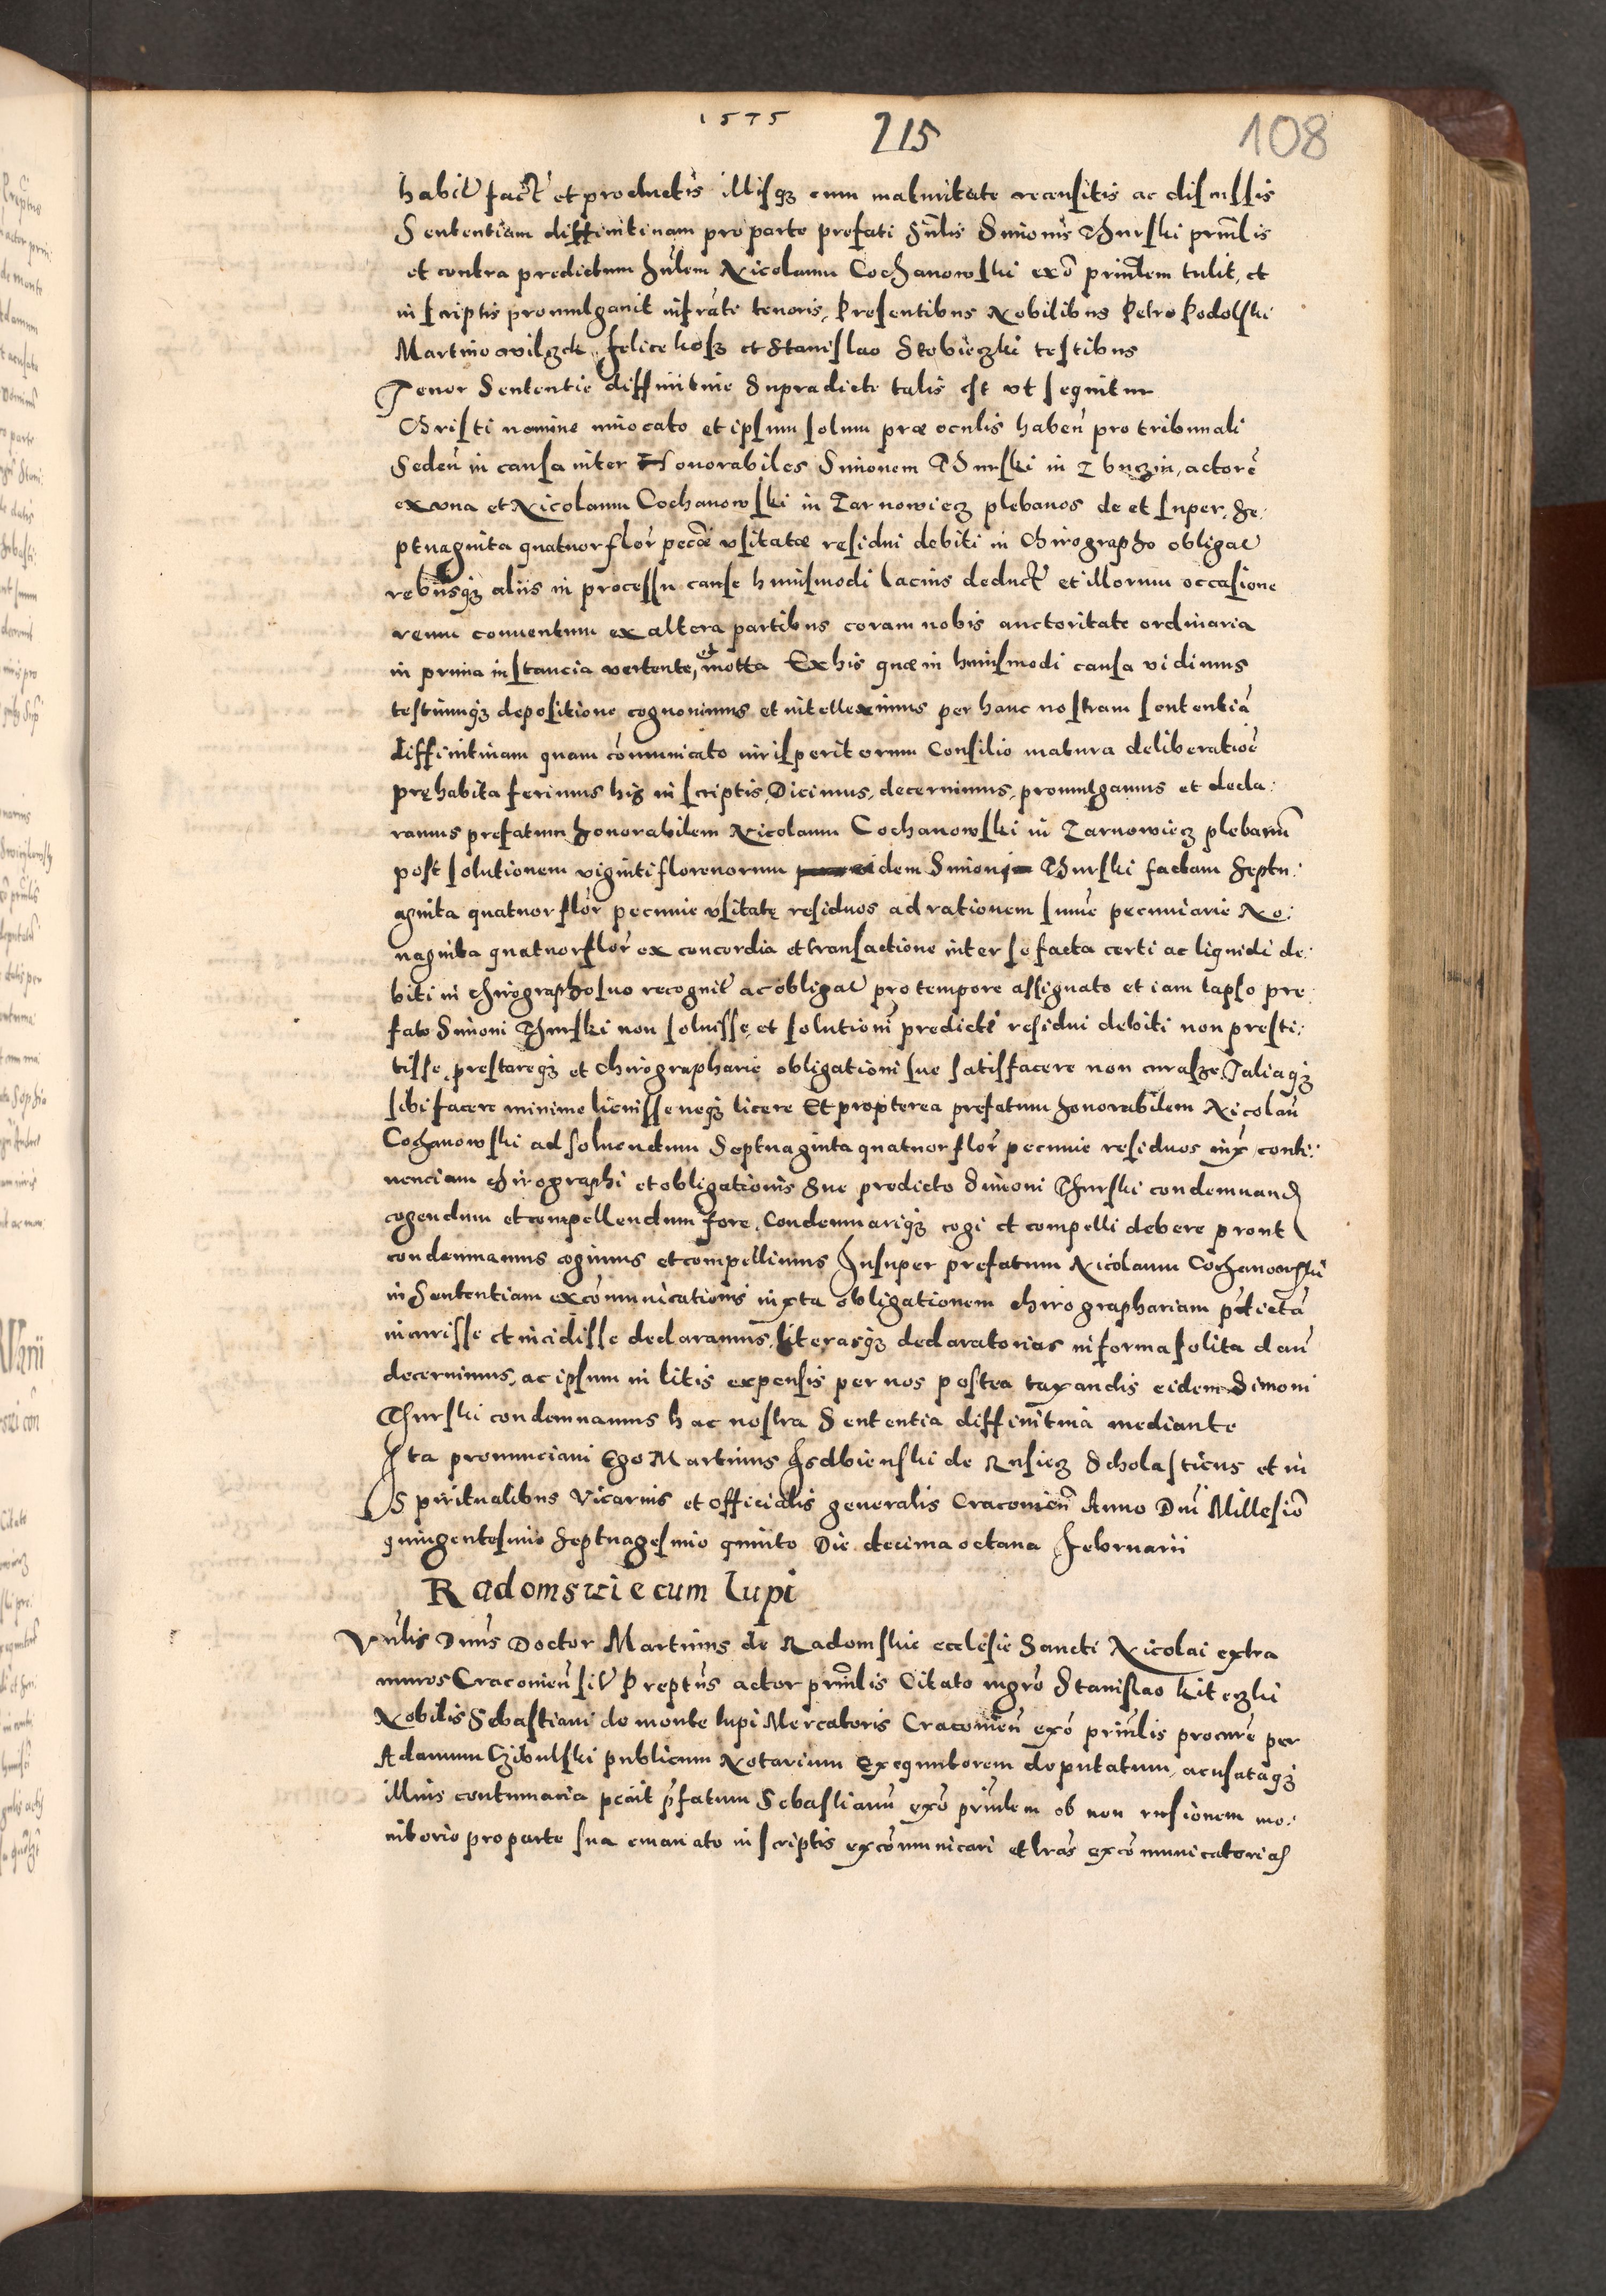 1575
215
108
habit fact et productis illisqz cum maturitate recensitis ac discussis
Sententiam diffinitivam pro parte prefati hnlis Simonis Thurski prinlis
et contra predictum hnlem Nicolaum Cochanowski exo prinlem tulit, et
in scriptis promulgauit infrati tenoris, Presentibus Nobilibus Petro Podolski
Martino Wilczek Felice Kosz et Stanislao Stobieczki testibus
Tenor Sententie diffinitiue Supradicte talis est vt sequitur
Christi nomine inuocato et ipsum solum præ oculis haben pro tribunali
Seden in causa inter Honorabiles Simonem Thurski in Zbuczin, actore
ex vna et Nicolaum Cochanowski in Tarnowiecz plebanos de et super Se:
ptuaginta quatuor flor peccæ vsitatæ residui debiti in Chirographo obligat
rebusqz aliis in processu cause huiusmodi lacius deduct et illorum occasione
reum conuentum ex altera partibus coram nobis auctoritate ordinaria
in prima instancia vertente, et motta Ex his quæ in huiusmodi causa vidimus
testiumqz depositione cognouimus et intelleximus per hanc nostram sententia
diffinitiuam quam comunicato iurisperitorum Consilio matura deliberatioe
pręhabita ferimus his in scriptis, Dicimus, decernimus, promulgamus et decla:
ramus prefatum honorabilem Nicolaum Cochanowski in Tarnowiecz plebanu
post solutionem viginti florenorum eidem Simoni Thurski factam Septu:
aginta quatuor flor pecunie vsitatę residuos ad rationem sume pecuniarie No:
naginta quatuor flor ex concordia et transactione inter se facta certi ac liquidi de:
biti in chirographo suo recognit ac obligat pro tempore assignato et iam lapso pre:
fato Simoni Thurski non soluisse, et solutioni predicti residui debiti non presti:
tisse, prestareqz et Chirographarie obligationi sue satisfacere non curasze, Taliaqz
sibi facere minime licuisse neqz licere Et propterea prefatum honorabilem Nicolau
Cochanowski ad soluendum Septuaginta quatuor flor pecunie residuos iux conti:
nenciam chirographi et obligationis Sue predicto Simoni Thurski condemnand
cogendum et compellendum fore, Condemnariqz cogi et compelli debere prout
condemnamus cogimus et compellimus Insuper prefatum Nicolaum Cochanowski
in Sententiam excomunicationis iuxta obligationem chirographariam pdicta
incurisse et incidisse declaramus, literasqz declaratorias in forma solita dan
decernimus, ac ipsum in litis expensis per nos postea taxandis eidem Simoni
Thurski condemnamus hac nostra Sententia diffinitiua mediante
Ita pronunciaui Ego Martinus Isdbienski de Rusiecz Scholasticus et in
Spiritualibus Vicarius et officialis generalis Cracouien Anno Dni Millesio
quingentesimo Septuagesimo quinto Die decima octaua Februarii
Radomskie cum Lupi
Vnlis Dnus Doctor Martinus de Radomskie ecclesie Sancti Nicolai extra
muros Cracouien Preptus actor prinlis Citato mgro Stanislao
Nobilis Sebastiani de monte lupi Mercatoris Cracouien exo prinlis procure per
Adamum Czibulski publicum Notarium Exequutorem deputatum, acusataqz
illius contumacia peciit pfatum Sebastianu exo prinlem ob non rusionem mo:
nitorio pro parte sua emanato in scriptis excomunicari et lras excomunicatorias